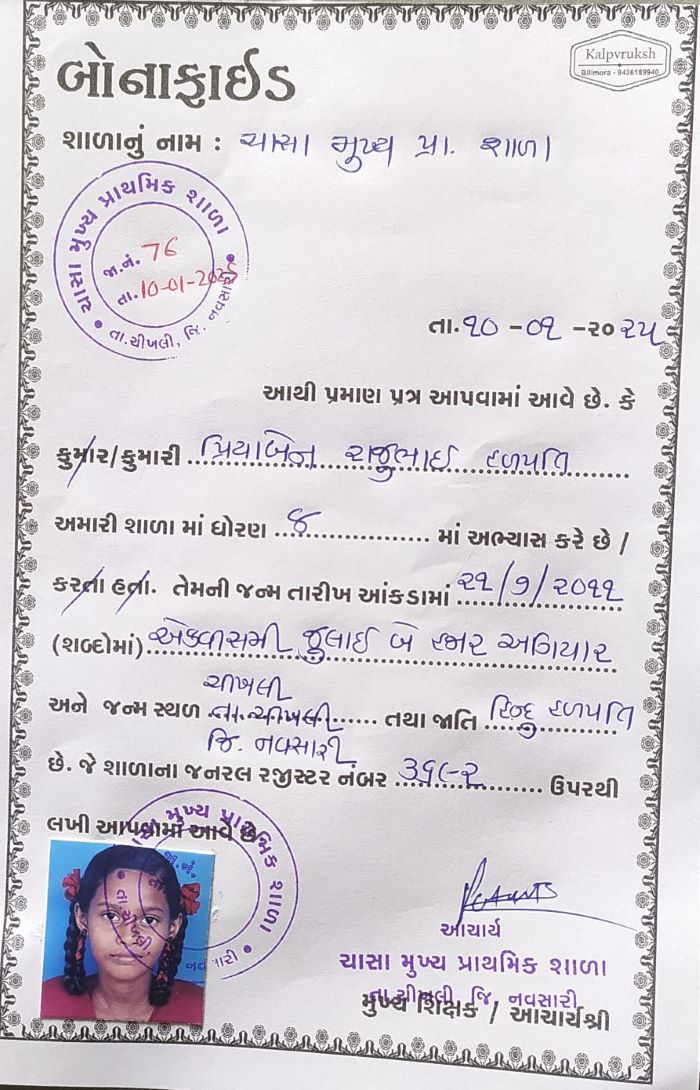 Kalpvruksh
Bilimora - 9426189940
બોનાફાઈડ
શાળાનું નામ : ચાસા મુખ્ય પ્રા. શાળા
ચાસા મુખ્ય પ્રાથમિક શાળા
જા.નં. 76
તા. 10-01-2025
તા.ચીખલી, જિ. નવસારી
તા.૧૦ -૦૧ -૨૦૨૫
આથી પ્રમાણ પત્ર આપવામાં આવે છે. કે
કુમાર/કુમારી પ્રિયાબેન રાજુભાઈ હળપતિ
અમારી શાળા માં ધોરણ ૮ માં અભ્યાસ કરે છે /
કરતા હતા. તેમની જન્મ તારીખ આંકડામાં ૨૧/૭/૨૦૧૧
(શબ્દોમાં) એકવીસમી જુલાઈ બે હજાર અગિયાર
ચીખલી
અને જન્મ સ્થળ તા.ચીખલી તથા જાતિ હિન્દુ હળપતિ
જિ. નવસારી
છે. જે શાળાના જનરલ રજીસ્ટર નંબર ઉપરથી
લખી આપવામાં આવે છે
મુખ્ય પ્રાથમિક શાળા
આચાર્ય
ચાસા મુખ્ય પ્રાથમિક શાળા
તા.ચીખલી, જિ. નવસારી
મુખ્ય શિક્ષક / આચાર્યશ્રી